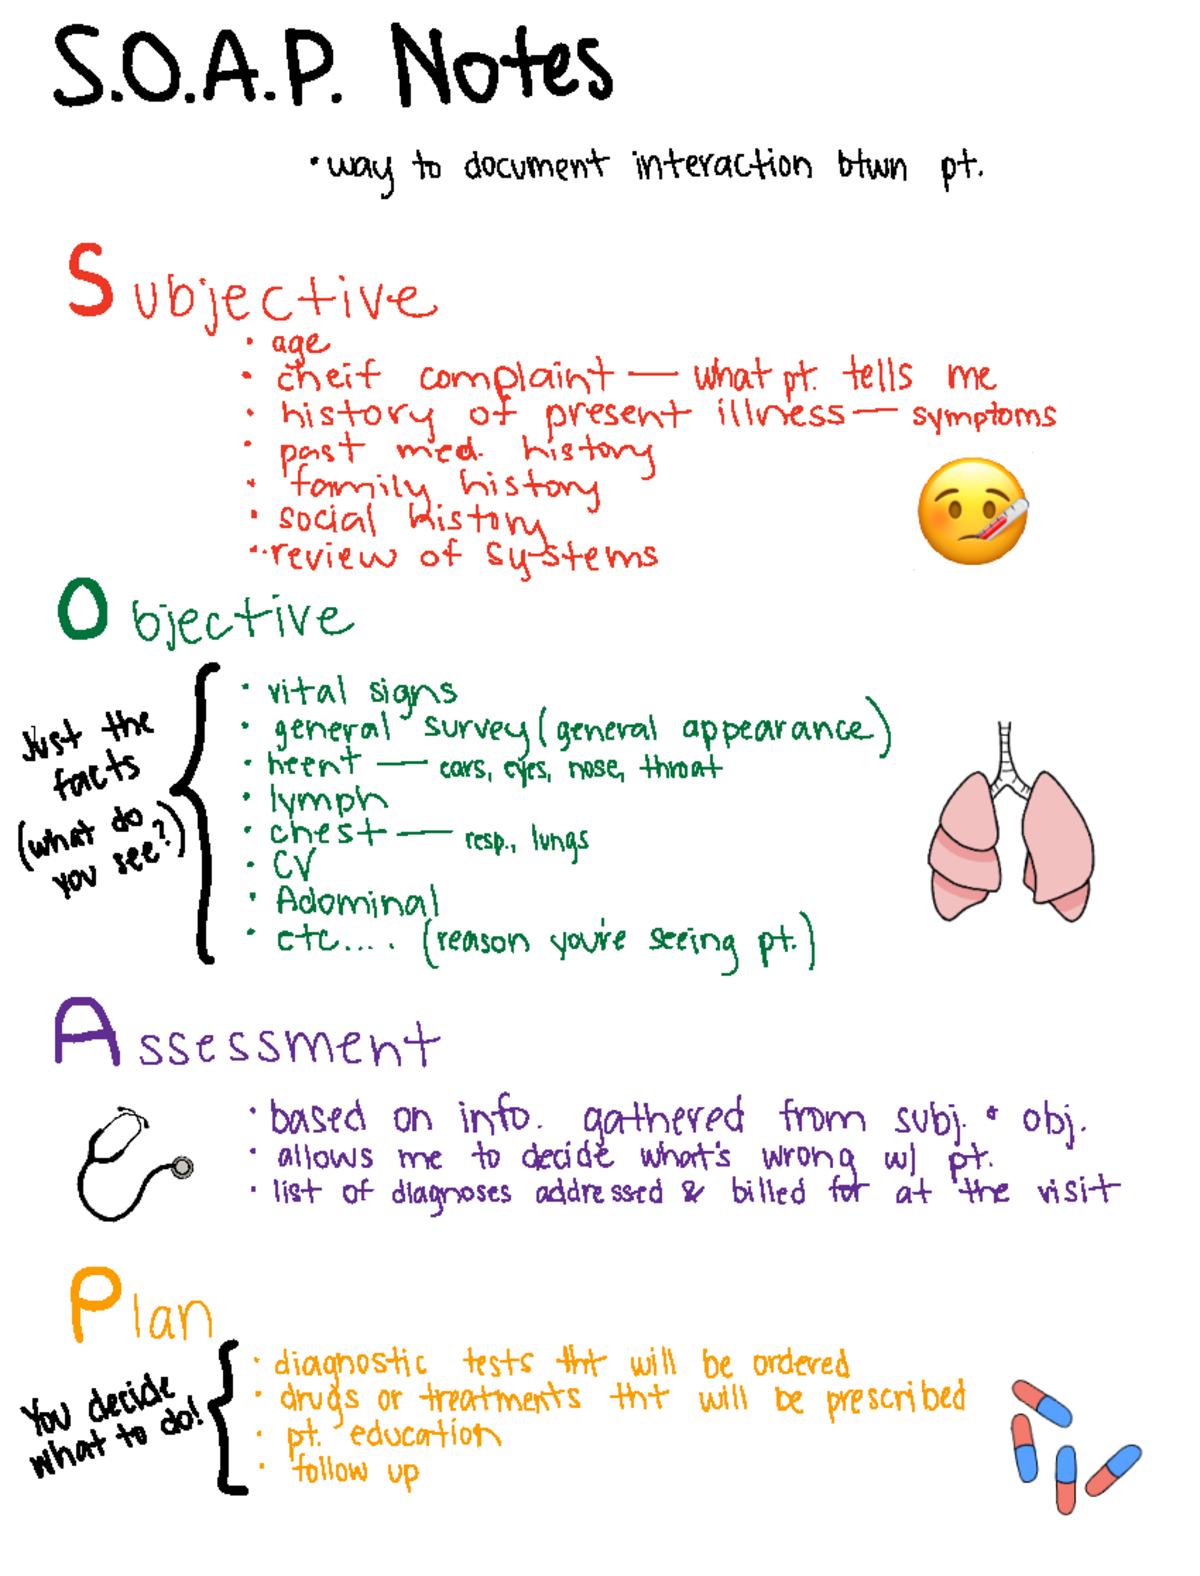 S.O.A.P. Notes
• way to document interaction btwn pt.
Subjective
• age
• cheif complaint — what pt. tells me
• history of present illness — symptoms
• past med. history
• family history
• social history
• review of systems
Objective
Just the facts (what do you see?)
• vital signs
• general survey (general appearance)
• heent — ears, eyes, nose, throat
• lymph
• chest — resp., lungs
• CV
• Adominal
• etc.... (reason you're seeing pt.)
Assessment
• based on info. gathered from subj. + obj.
• allows me to decide what's wrong w/ pt.
• list of diagnoses addressed & billed for at the visit
Plan
You decide what to do!
• diagnostic tests tht will be ordered
• drugs or treatments tht will be prescribed
• pt. education
• follow up